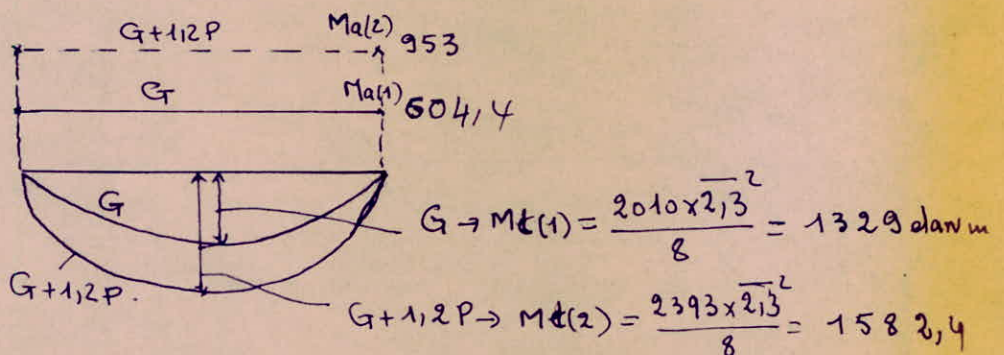 G+1,2P Ma(2) 953
G Ma(1) 604,4
G G → Mt(1) = 2010×2,3² / 8 = 1329 daN m
G+1,2P. G+1,2P → Mt(2) = 2393×2,3² / 8 = 1582,4